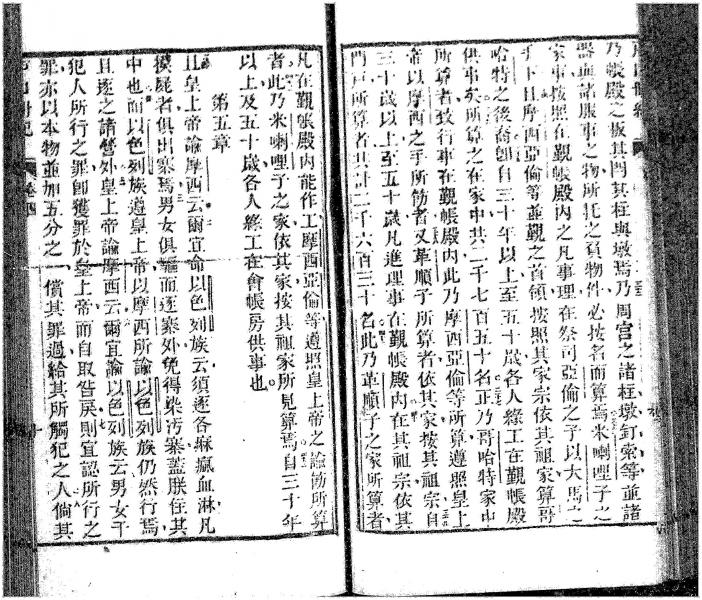 乃帳殿之板其閂其柱與墩焉乃周宮之諸柱墩釘索等並諸
器與諸服事之物所托之負物件必按名而算焉米喇哩子之
家事按照在覲帳殿內之凡事理在祭司亞倫之子以大馬之
手下且摩西亞倫等並覲之首領按照其家宗依其祖家算哥
哈特之後裔卽自三十年以上至五十歲各人緣工在覲帳殿
供事矣所算之在家中共二千七百五十名正乃哥哈特家中
所算者致行事在覲帳殿內此乃摩西亞倫等所算遵照皇上
帝以摩西之手所飭者又革順子所算者依其家按其祖宗自
三十歲以上至五十歲凡進理事在覲帳殿內在其祖宗依其
門戶所算者共計二千六百三十名此乃革順子之家所算者
凡在覲帳殿內能作工摩西亞倫等遵照皇上帝之諭飭所算
者此乃米喇哩子之家依其家按其祖家所見算焉自三十年
以上及五十歲各人緣工在會帳房供事也
第五章
且皇上帝諭摩西云爾宜命以色列族云須逐各痳瘋血淋凡
摸屍者俱出寨焉男女俱驅而逐寨外免得染污寨蓋朕住其
中也而以色列族遵皇上帝以摩西所諭以色列族仍然行焉
且逐之諸營外皇上帝諭摩西云爾宜諭以色列族云男女干
犯人所行之罪卽獲罪於皇上帝而自取咎戾則宜認所行之
罪亦以本物並加五分之一償其罪過給其所觸犯之人倘其